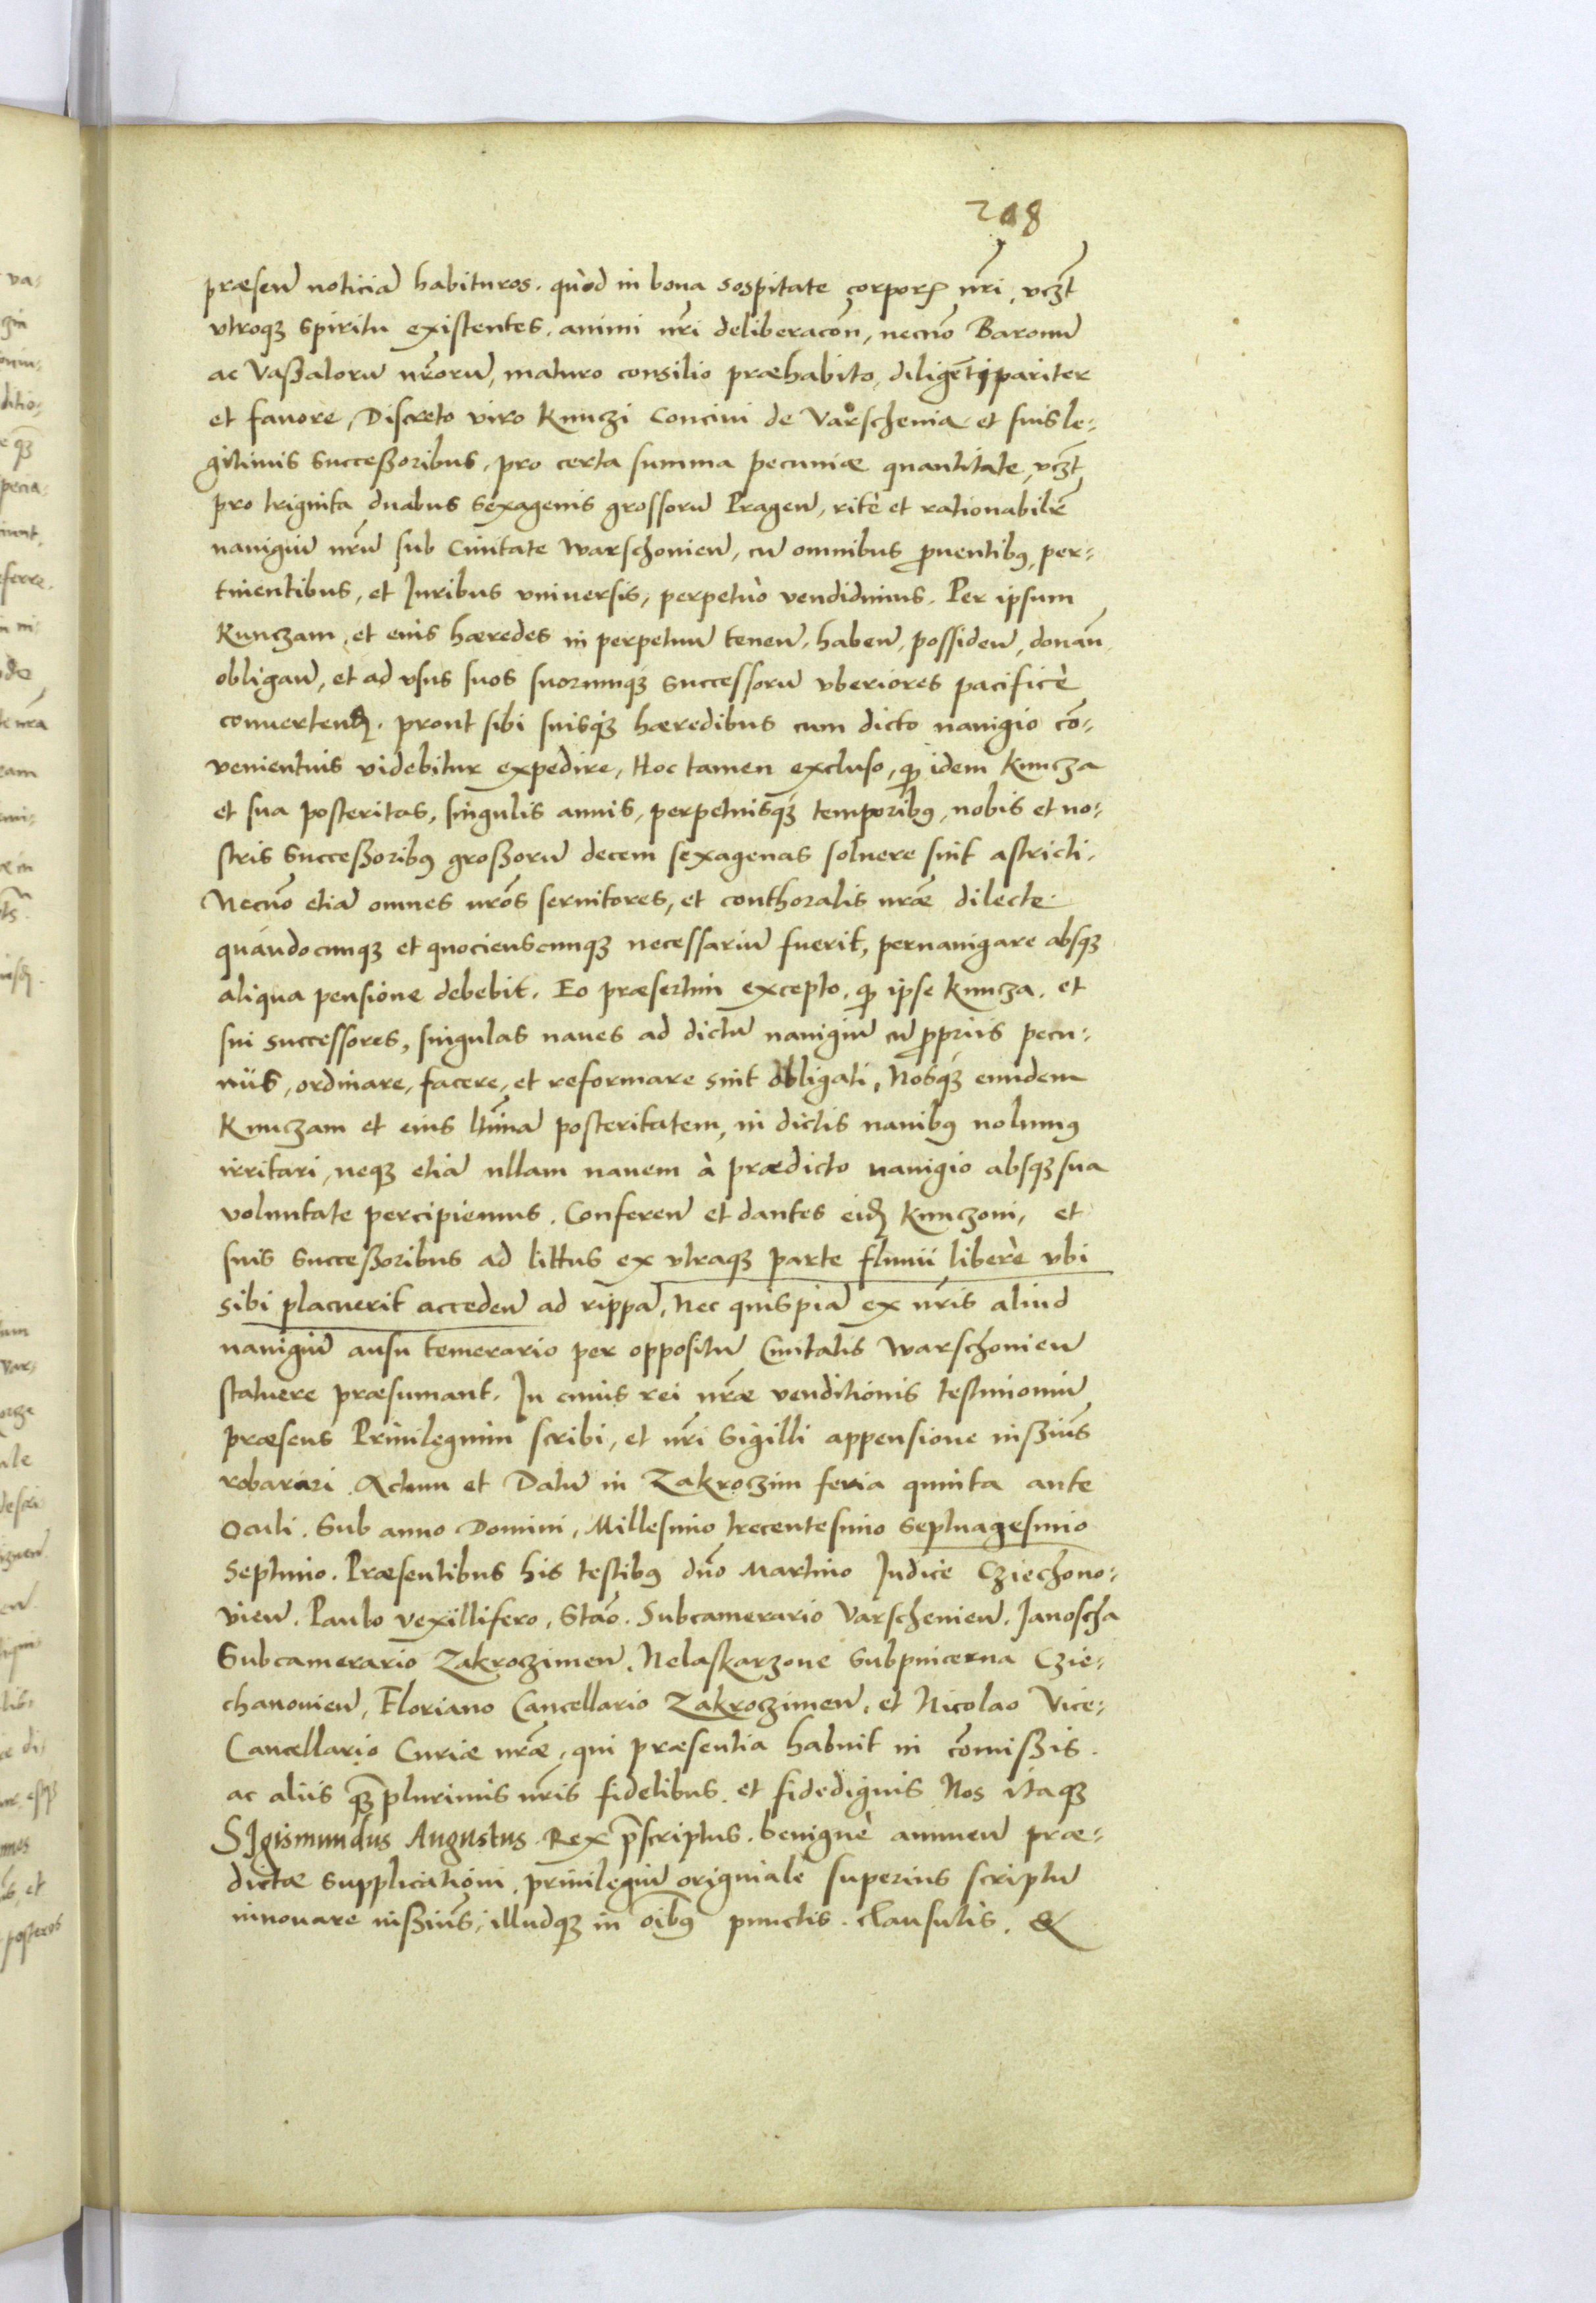 208
præsen̄ noticiā habituros. quòd in bona sospitate corporꝭ nr̄i, vcz̄t
vtroqꝫ spiritu existentes. animi nr̄i deliberacōn, necnō Baronū
ac Vaßalorū nr̄orū, maturo consilio præhabito, diligēti pariter
et fauore, Discreto viro Kunczi Conciui de Varschenia et suis le-
gitimis successoribus, pro certa summa pecuniæ quantitate, vcz̄t
pro triginta duabus sexagenis grossorū Pragen̄, ritè et rationabilr̄
nauigiū nr̄ū sub Ciuitate Warschonien̄, cū omnibus ꝓuentibꝰ, per-
tinentibus, et Juribus vniuersis, perpetuò vendidimus. Per ipsum
Kunczam, et eius hæredes in perpetuū tenen̄, haben̄, possiden̄, donan̄
obligan̄, et ad vsus suos suorumqꝫ successorū vberiores pacificè
conuertenđ. prout sibi suisqꝫ hæredibus cum dicto nauigio cō-
uenientius videbitur expedire, Hoc tamen excluso, qꝫ idem Kuncza
et sua posteritas, singulis annis, perpetuisqꝫ temporibꝰ, nobis et no-
stris Succeßoribꝰ großorū decem sexagenas soluere sint astricti.
Necnō etiā omnes nr̄os seruitores, et conthoralis nr̄æ dilecte
quandocunqꝫ et quocienscunqꝫ necessariū fuerit, pernauigare absqꝫ
aliqua pensione debebit. Eo præsertim excepto, qꝫ ipse Kuncza. et
sui successores, singulas naues ad dictū nauigiū cū ꝓprijs pecu-
nijs, ordinare, facere, et reformare sint obligati, Nosqꝫ eundem
Kunczam et eius ltīmā posteritatem, in dictis nauibꝰ nolumꝰ
irritari, neqꝫ etiā ullam nauem à prædicto nauigio absqꝫ sua
voluntate percipiemus. Conferen̄ et dantes eidđ Kunczoni, et
suis Succeßoribus ad littus ex vtraqꝫ parte fluuii libere vbi
sibi placuerit acceden̄ ad rippā, Nec quispiā ex nr̄is aliud
nauigiū ausu temerario per oppositū Ciuitatis Warschonien̄
statuere præsumant. In cuius rei nr̄æ venditionis testimoniū
præsens Priuilegium scribi, et nr̄i Sigilli appensione iußim̄s
robarari. Actum et Datū in Zakroczim feria quinta ante
Oculi. Sub anno Domini, Millesimo trecentesimo septuagesimo
Septimo. Præsentibus his testibꝰ dn̄o Martino Judice Cziechono-
uien̄. Paulo vexillifero, Stāo. Subcamerario Varschenien̄. Janoscha
Subcamerario Zakroczimen̄. Nelaskarzone Subpincerna Czie-
chanouien̄, Floriano Cancellario Zakroczimen̄, et Nicolao Vice-
Cancellario Curiæ nr̄æ, qui præsentia habuit in cōmißis.
ac aliis qꝫ̄plurimis nr̄is fidelibus. et fidedignis Nos itaqꝫ
SIgismundus Augustus. Rex p̄scriptus. benignè annuen̄ præ-
dictæ supplicationi, priuilegiū originale superius scriptū
innouare iußim̄s, illudqꝫ in oībꝰ punctis. clausulis. &